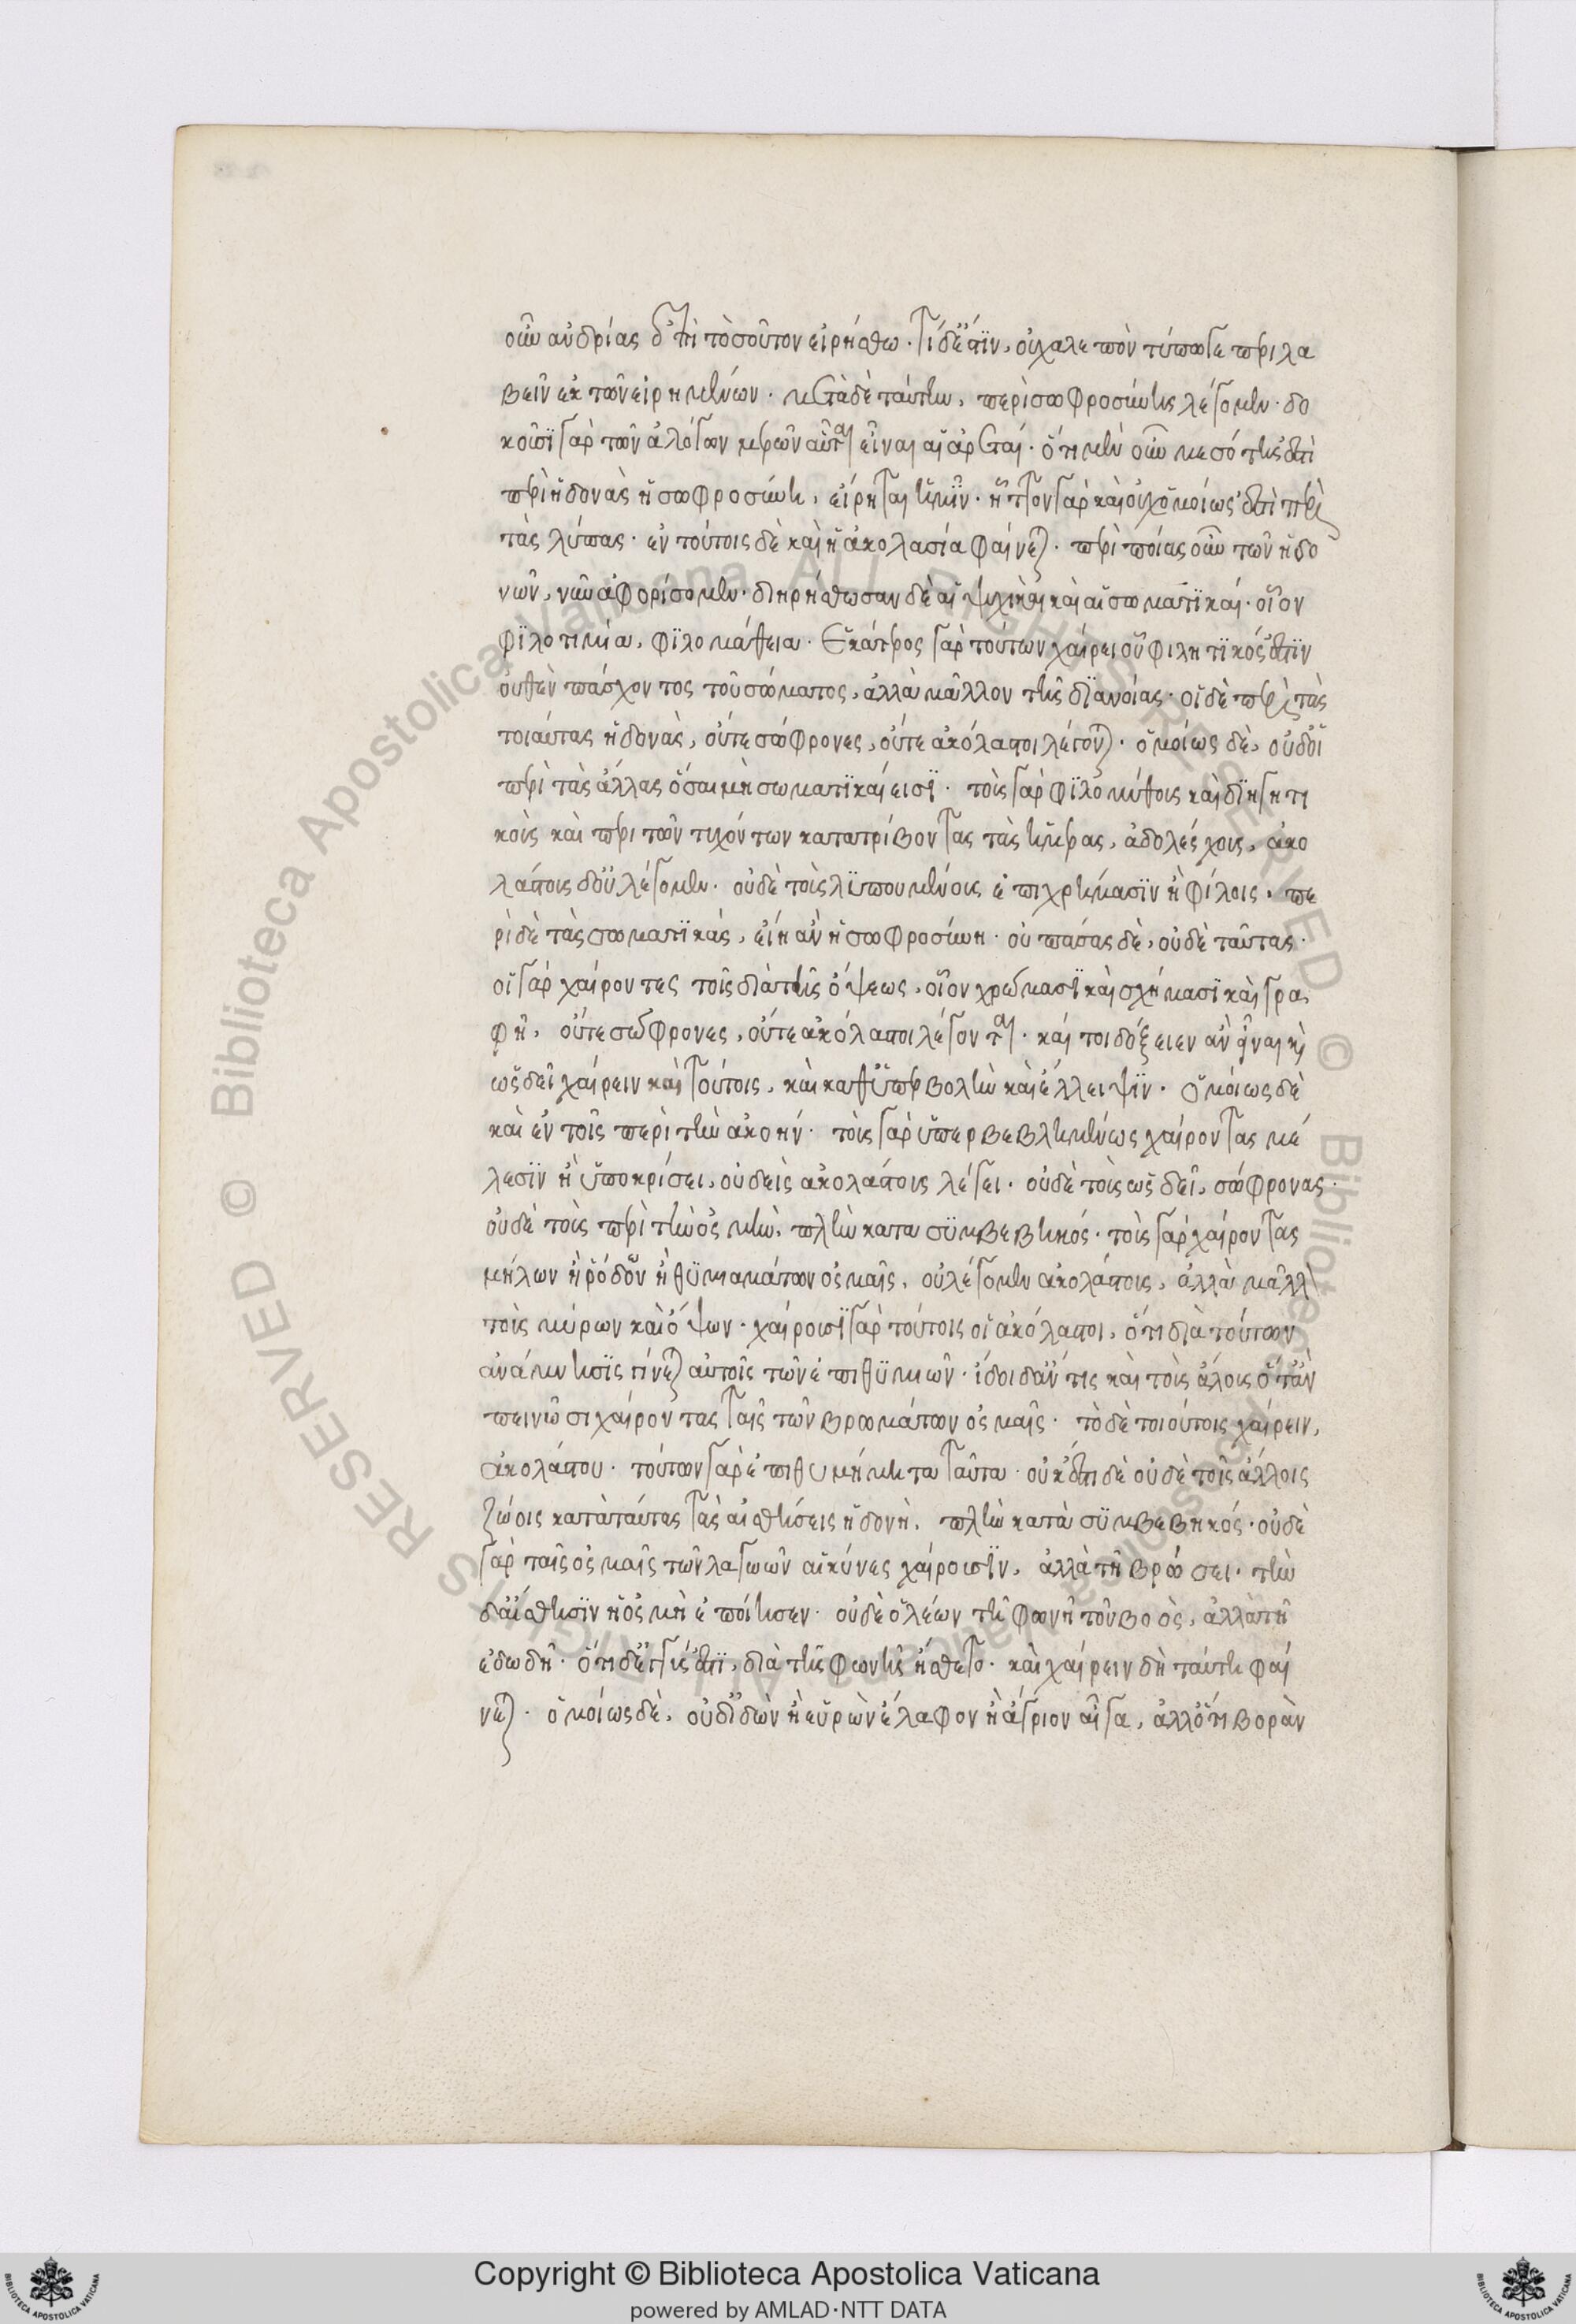 οὖν ἀνδρίας ἐπὶ τοσοῦτον εἰρήσθω· τί δ' ἐστὶν, οὐ χαλεπὸν τύπω γε περιλα
βεῖν ἐκ τῶν εἰρημένων· μετὰ δὲ ταύτην, περὶ σωφροσύνης λέγομεν· δο
κοῦσι γὰρ τῶν ἀλόγων μερῶν αὗται εἶναι αἱ ἀρεταί· ὅτι μὲν οὖν μεσότης ἐστὶ
περὶ ἡδονὰς ἡ σωφροσύνη, εἴρηται ἡμῖν· ἧττον γὰρ καὶ οὐχ ὁμοίως ἐστὶ περὶ
τὰς λύπας· ἐν τούτοις δὲ καὶ ἡ ἀκολασία φαίνεται· περὶ ποίας οὖν τῶν ἡδο
νῶν, νῦν ἀφορίσομεν· διηρήσθωσαν δὲ αἱ ψυχικαὶ καὶ αἱ σωματικαί· οἷον
φιλοτιμία, φιλομάθεια· ἑκάτερος γὰρ τούτων χαίρει οὗ φιλητικός ἐστιν
οὐθὲν πάσχοντος τοῦ σώματος, ἀλλὰ μᾶλλον τῆς διανοίας· οἱ δὲ περὶ τὰς
τοιαύτας ἡδονὰς, οὔτε σώφρονες, οὔτε ἀκόλαστοι λέγονται· ὁμοίως δὲ, οὐδ' οἱ
περὶ τὰς ἄλλας ὅσαι μὴ σωματικαί εισι· τοὺς γὰρ φιλομύθους καὶ διηγητι
κοὺς καὶ περι τῶν τυχόντων κατατρίβοντας τὰς ἡμέρας, ἀδολέσχους, ἀκο
λάστους δ' οὐ λέγομεν· οὐδὲ τοὺς λυπουμένους ἐπι χρήμασιν ἢ φίλοις· πε
ρὶ δὲ τὰς σωματικάς, εἴη ἂν ἡ σωφροσύνη· οὐ πάσας δὲ, οὐδὲ ταύτας·
οἱ γὰρ χαίροντες τοῖς διὰ τῆς ὄψεως, οἷον χρώμασι καὶ σχήμασι καὶ γρα
φῆ, οὔτε σώφρονες, οὔτε ἀκόλαστοι λέγονται· καί τοι δόξειεν ἂν εἶναι καὶ
ὡς δεῖ χαίρειν καὶ τούτοις, καὶ καθ' ὑπερβολὴν καὶ ἔλλειψιν· ὁμοίως δὲ
καὶ ἐν τοῖς περὶ τὴν ἀκοήν· τοὺς γὰρ ὑπερβεβλημένως χαίροντας μέ
λεσιν ἢ ὑποκρίσει, οὐδεὶς ἀκολάστους λέγει· οὐδὲ τοὺς ὡς δεῖ, σώφρονας·
οὐδὲ τοὺς περὶ τὴν ὀσμὴν, πλὴν κατα συμβεβηκός· τοὺς γὰρ χαίροντας
μήλων ἢ ῥόδων ἢ θυμιαμάτων ὀσμαῖς, οὐ λέγομεν ἀκολάστους, ἀλλὰ μᾶλλον
τοὺς μύρων καὶ ὄψων· χαίρουσι γὰρ τούτοις οἱ ἀκόλαστοι, ὅτι διὰ τούτων
ἀνάμνησις γίνεται αὐτοῖς τῶν ἐπιθυμιῶν· ἴδοι δ' ἄν τις καὶ τοὺς ἄλλους ὅταν
πεινῶσι χαίροντας ταῖς τῶν βρωμάτων ὀσμαῖς· τὸ δὲ τοιούτοις χαίρειν,
ἀκολάστου· τούτων γὰρ ἐπιθυμήματα ταῦτα· οὐκ ἔστι δὲ οὐδὲ τοῖς ἄλλοις
ζώοις κατὰ ταύτας τὰς αἰσθήσεις ἡδονὴ, πλὴν κατὰ συμβεβηκός· οὐδὲ
γὰρ ταῖς ὀσμαῖς τῶν λαγωῶν αἱ κύνες χαίρουσιν, ἀλλὰ τῆ βρώσει· τὴν
δ' αἴσθησιν ἡ ὀσμὴ ἐποίησεν· οὐδὲ ὁ λέων τῆ φωνῆ τοῦ βοὸς, ἀλλὰ τῆ
ἐδωδῆ· ὅτι δ' ἐγγύς ἐστι, διὰ τῆς φωνῆς ἤσθετο· καὶ χαίρειν δὴ ταύτη φαί
νεται· ὁμοίως δὲ, οὐδ' ἰδὼν ἢ εὑρὼν ἔλαφον ἢ ἄγριον αἶγα, ἀλλ' ὅτι βορὰν
Copyright © Biblioteca Apostolica Vaticana
powered by AMLAD·NTT DATA